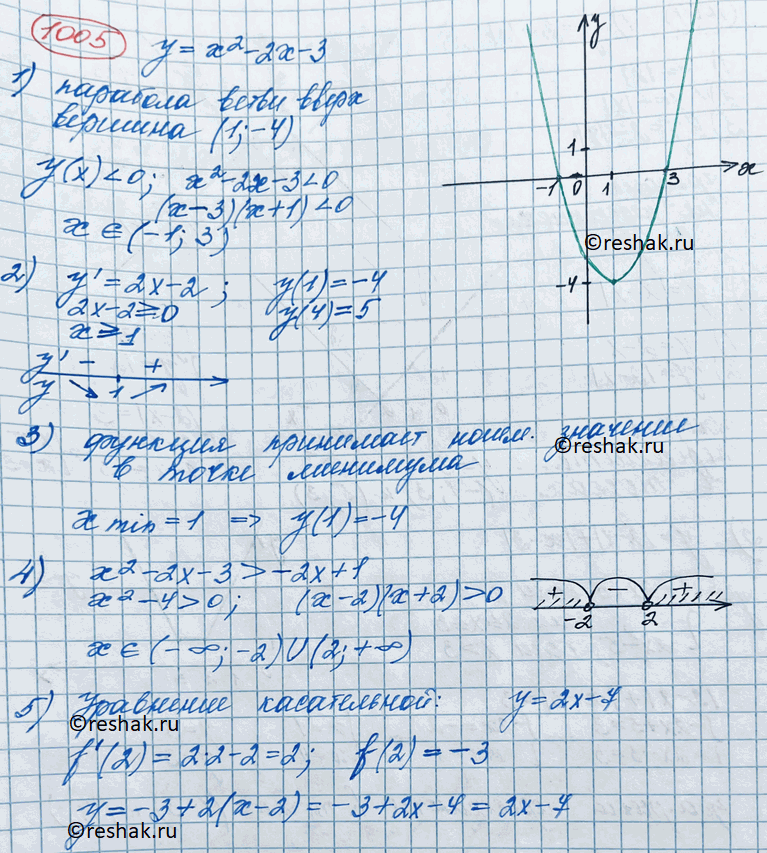 1005 y = x² - 2x - 3
1) парабола ветви вверх
вершина (1; -4)
y(x) < 0; x² - 2x - 3 < 0
(x-3)(x+1) < 0
x ∈ (-1; 3)
y
1
-1 0 1 3 x
-4
©reshak.ru
2) y' = 2x - 2; y(1) = -4
2x - 2 ≥ 0 y(4) = 5
x ≥ 1
y' - +
y 1
3) функция принимает наим. значение
©reshak.ru
в точке минимума
x min = 1 => y(1) = -4
4) x² - 2x - 3 > -2x + 1
x² - 4 > 0; (x-2)(x+2) > 0
+ - +
-2 2
x ∈ (-∞; -2) ∪ (2; +∞)
5) Уравнение касательной: y = 2x - 7
©reshak.ru
f'(2) = 2·2 - 2 = 2; f(2) = -3
y = -3 + 2(x-2) = -3 + 2x - 4 = 2x - 7
©reshak.ru